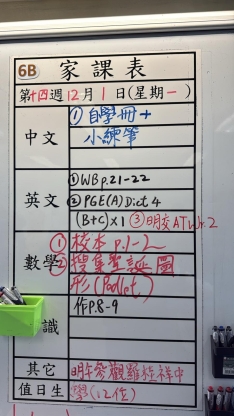 6B 家課表
第十四週12月1日(星期一)
中文
① 自學冊+
小練筆
英文
① WB p.21-22
② PGE(A) Dict 4
(B+C)x1 ③明交AT Wr.2
數學
① 校本 p.1-2
② 搜集聖誕圖
形 (Padlet)
識
作P.8-9
其它
明午參觀
值日生
學(12位)